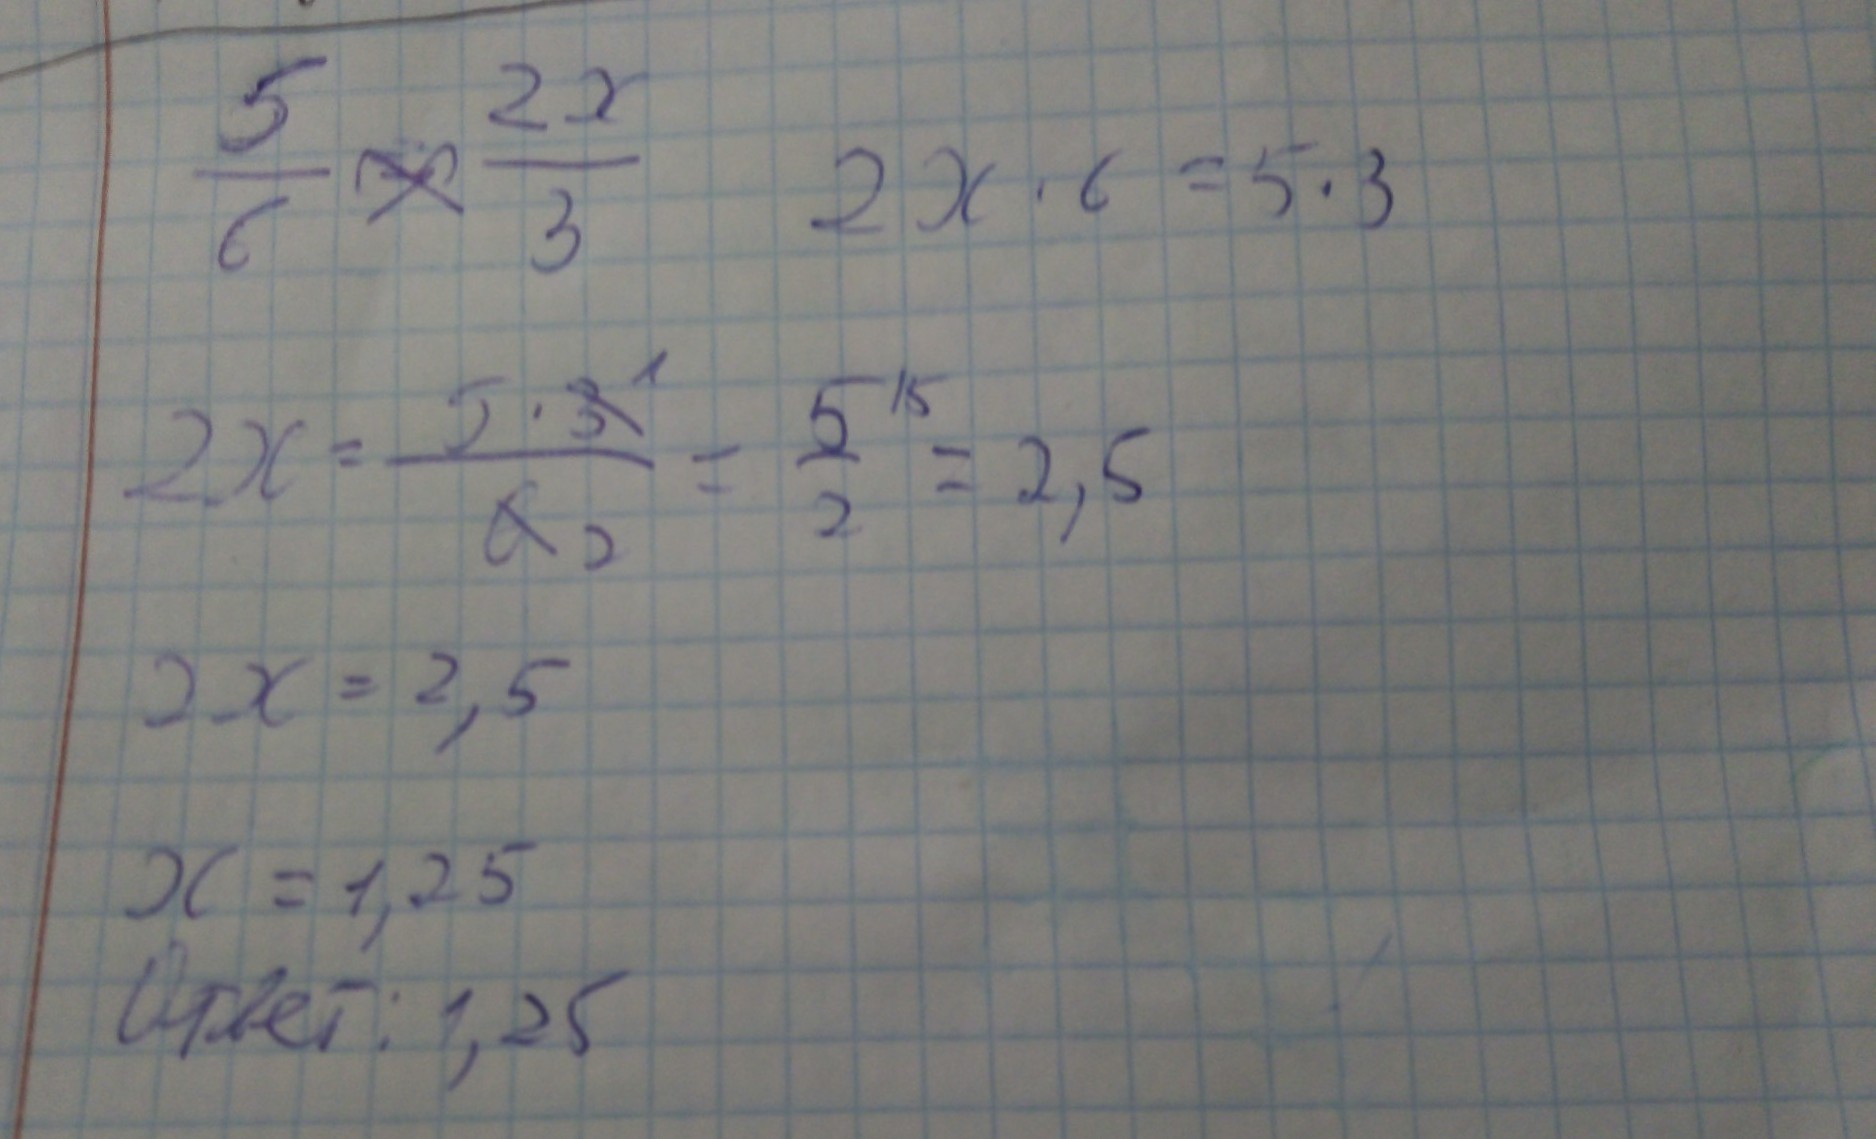 5/6 = 2x/3 2x · 6 = 5 · 3
2x = 5 · 3 1 / 6 2 = 5/2 15 = 2,5
2x = 2,5
x = 1,25
Ответ: 1,25